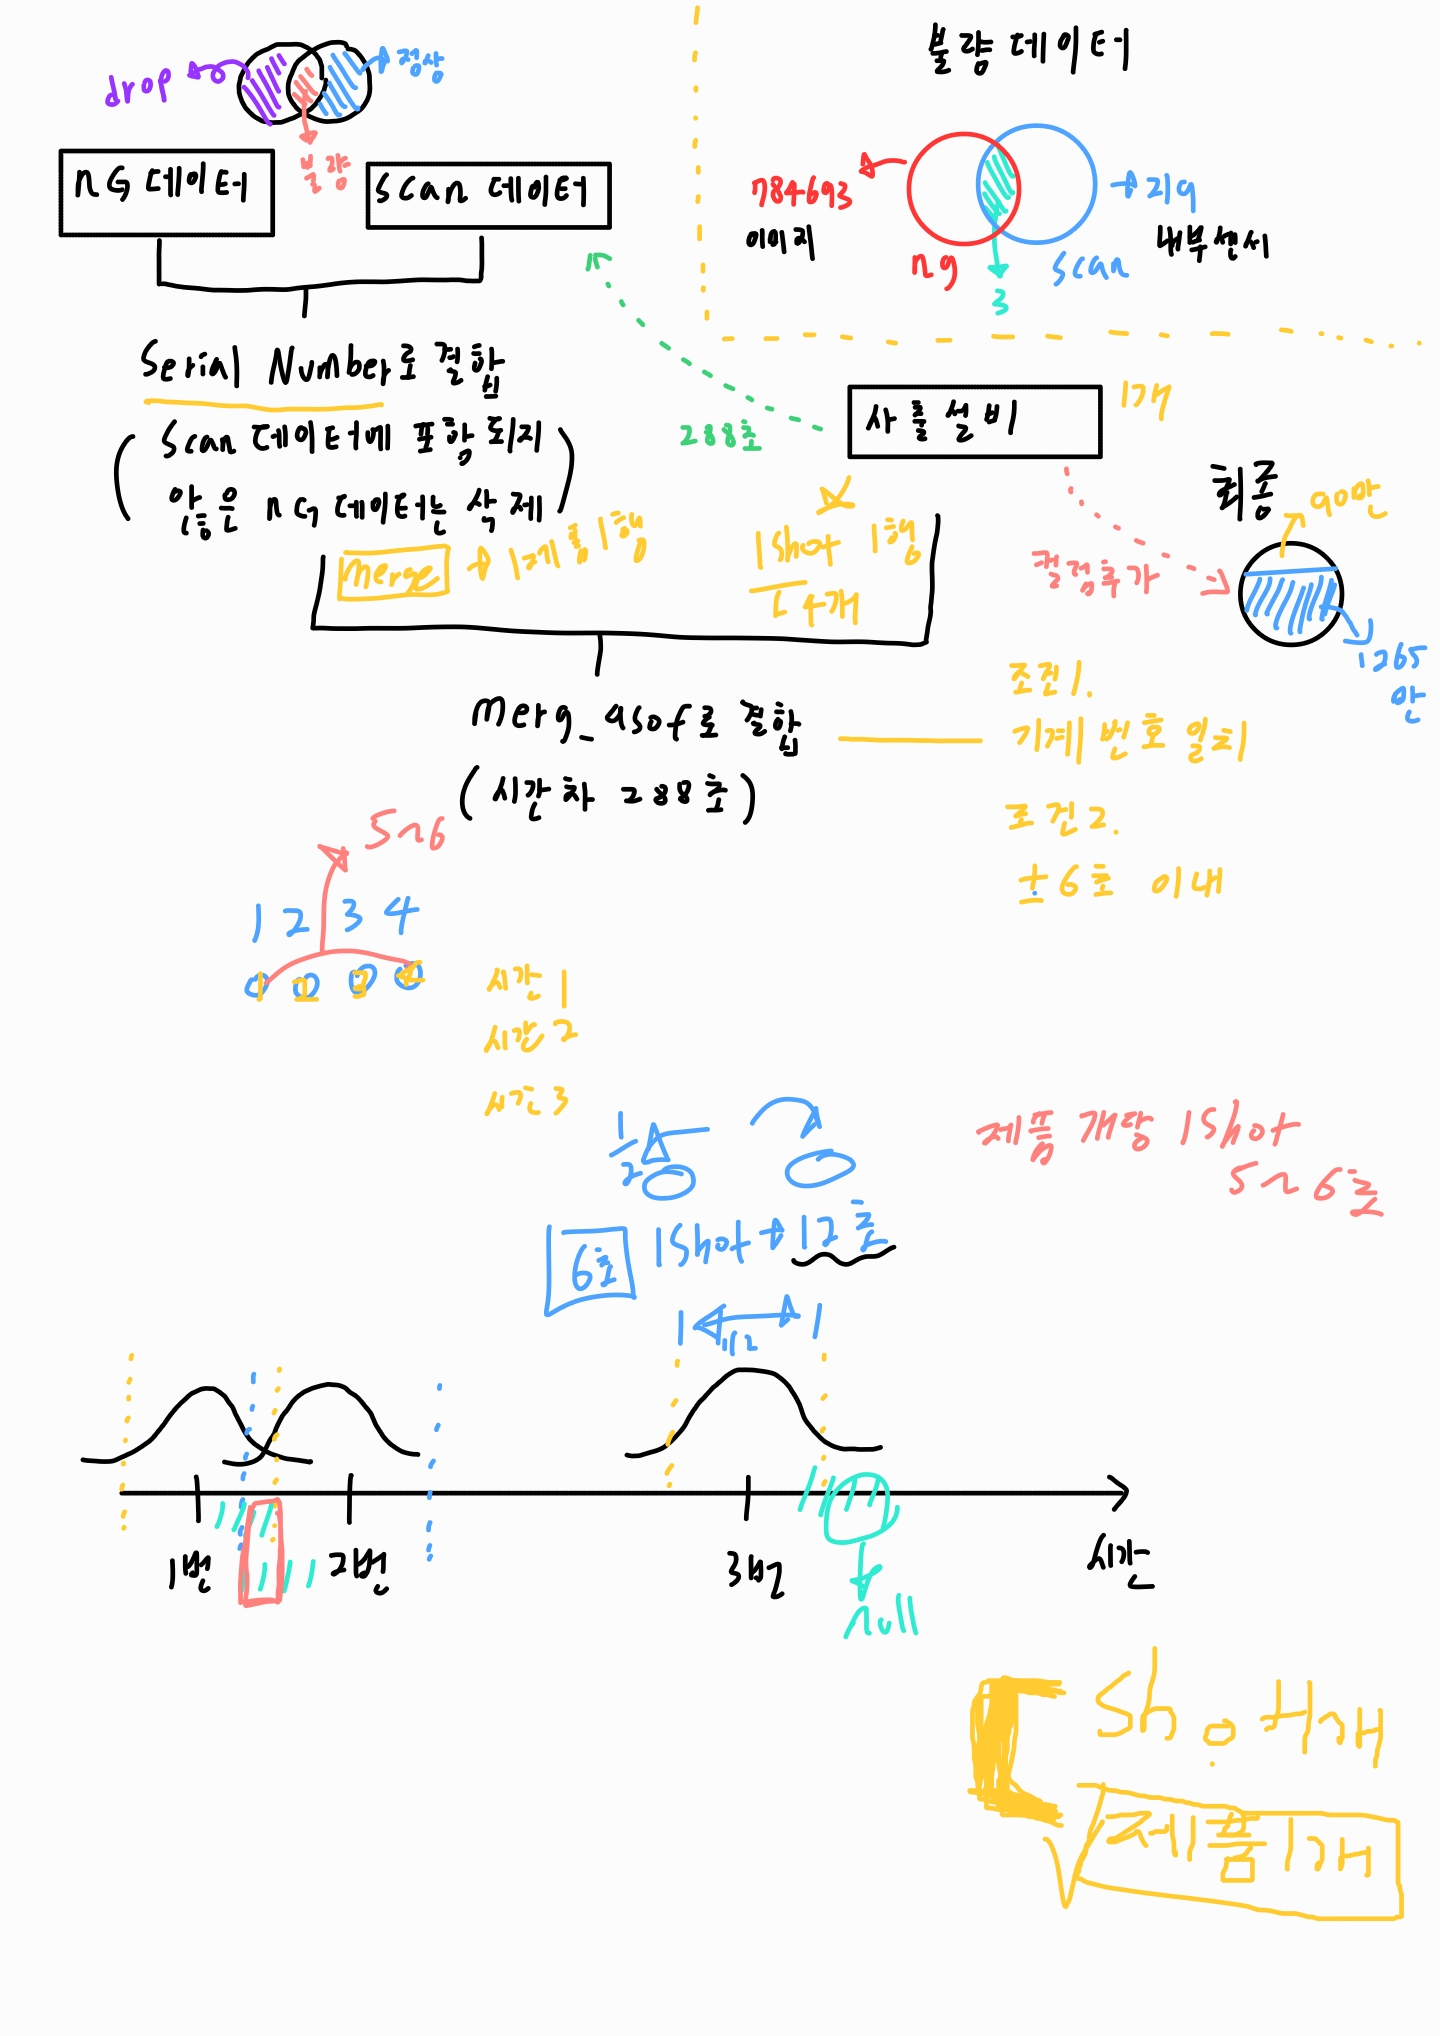 drop
정상
불량
NG 데이터
Scan 데이터
불량 데이터
784693
이미지
ng
3
scan
219
내부센서
Serial Number로 결합
(Scan 데이터에 포함 되지
않은 NG 데이터는 삭제)
merge → 1제품 1행
288초
사출설비
1개
1shot 1행
4개
결점추가
최종
90만
1265
만
merg_asof로 결합
(시간차 288초)
조건1.
기계 번호 일치
조건2.
±6초 이내
5~6
1 2 3 4
1 2 3 4
시간 1
시간 2
시간 3
1/2
제품 개당 1Shot
5~6초
6초
1Shot → 12초
1 1
1/2
1번
2번
3번
시간
null
Sh. 4개
제품 1개